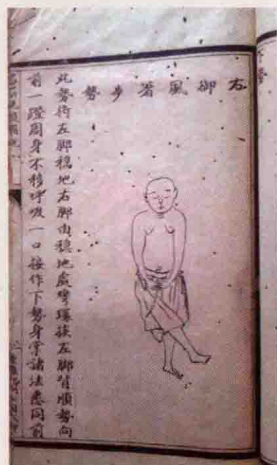 右御風著步勢
此勢将左脚穩地右脚由穩地處彎環挨左脚背順勢向
前蹬周身不移呼吸一口接作下勢身掌諸法悉同前